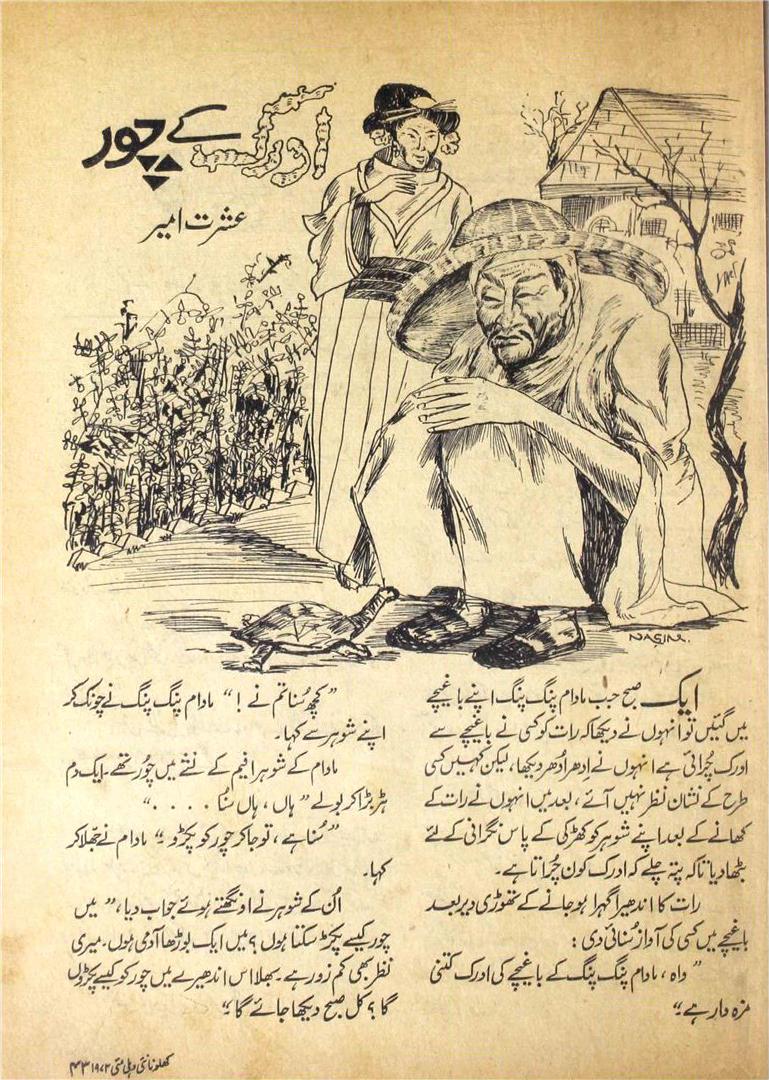 ادرک کے چور
عشرت امیر
NASIM.
ایک صبح جب مادام پنگ پنگ اپنے باغیچے
میں گئیں تو انہوں نے دیکھا کہ رات کو کسی نے باغیچے سے
ادرک چُرائی ہے انہوں نے اِدھر اُدھر دیکھا، لیکن کہیں کسی
طرح کے نشان نظر نہیں آئے، بعد میں انہوں نے رات کے
کھانے کے بعد اپنے شوہر کو کھڑکی کے پاس نگرانی کے لئے
بٹھا دیا تاکہ پتہ چلے کہ ادرک کون چُراتا ہے۔
رات کا اندھیرا گہرا ہو جانے کے تھوڑی دیر بعد
باغیچے میں کسی کی آواز سُنائی دی :
”واہ، مادام پنگ پنگ کے باغیچے کی ادرک کتنی
مزہ دار ہے“
”کچھ سُنا تم نے !“ مادام پنگ پنگ نے چونک کر
اپنے شوہر سے کہا۔
مادام کے شوہر افیم کے نشے میں چُور تھے۔ ایک دم
ہڑبڑا کر بولے ”ہاں، ہاں سُنا . . . .“
”سُنا ہے، تو جا کر چور کو پکڑو“ مادام نے جھلا کر
کہا۔
اُن کے شوہر نے اونگھتے ہوئے جواب دیا، ”میں
چور کیسے پکڑ سکتا ہوں؟ میں ایک بوڑھا آدمی ہوں۔ میری
نظر بھی کم زور ہے۔ بھلا اس اندھیرے میں چور کو کیسے پکڑوں
گا؟ کل صبح دیکھا جائے گا“
کھلونا نئی دہلی مئی ۱۹۷۲ ۴۳